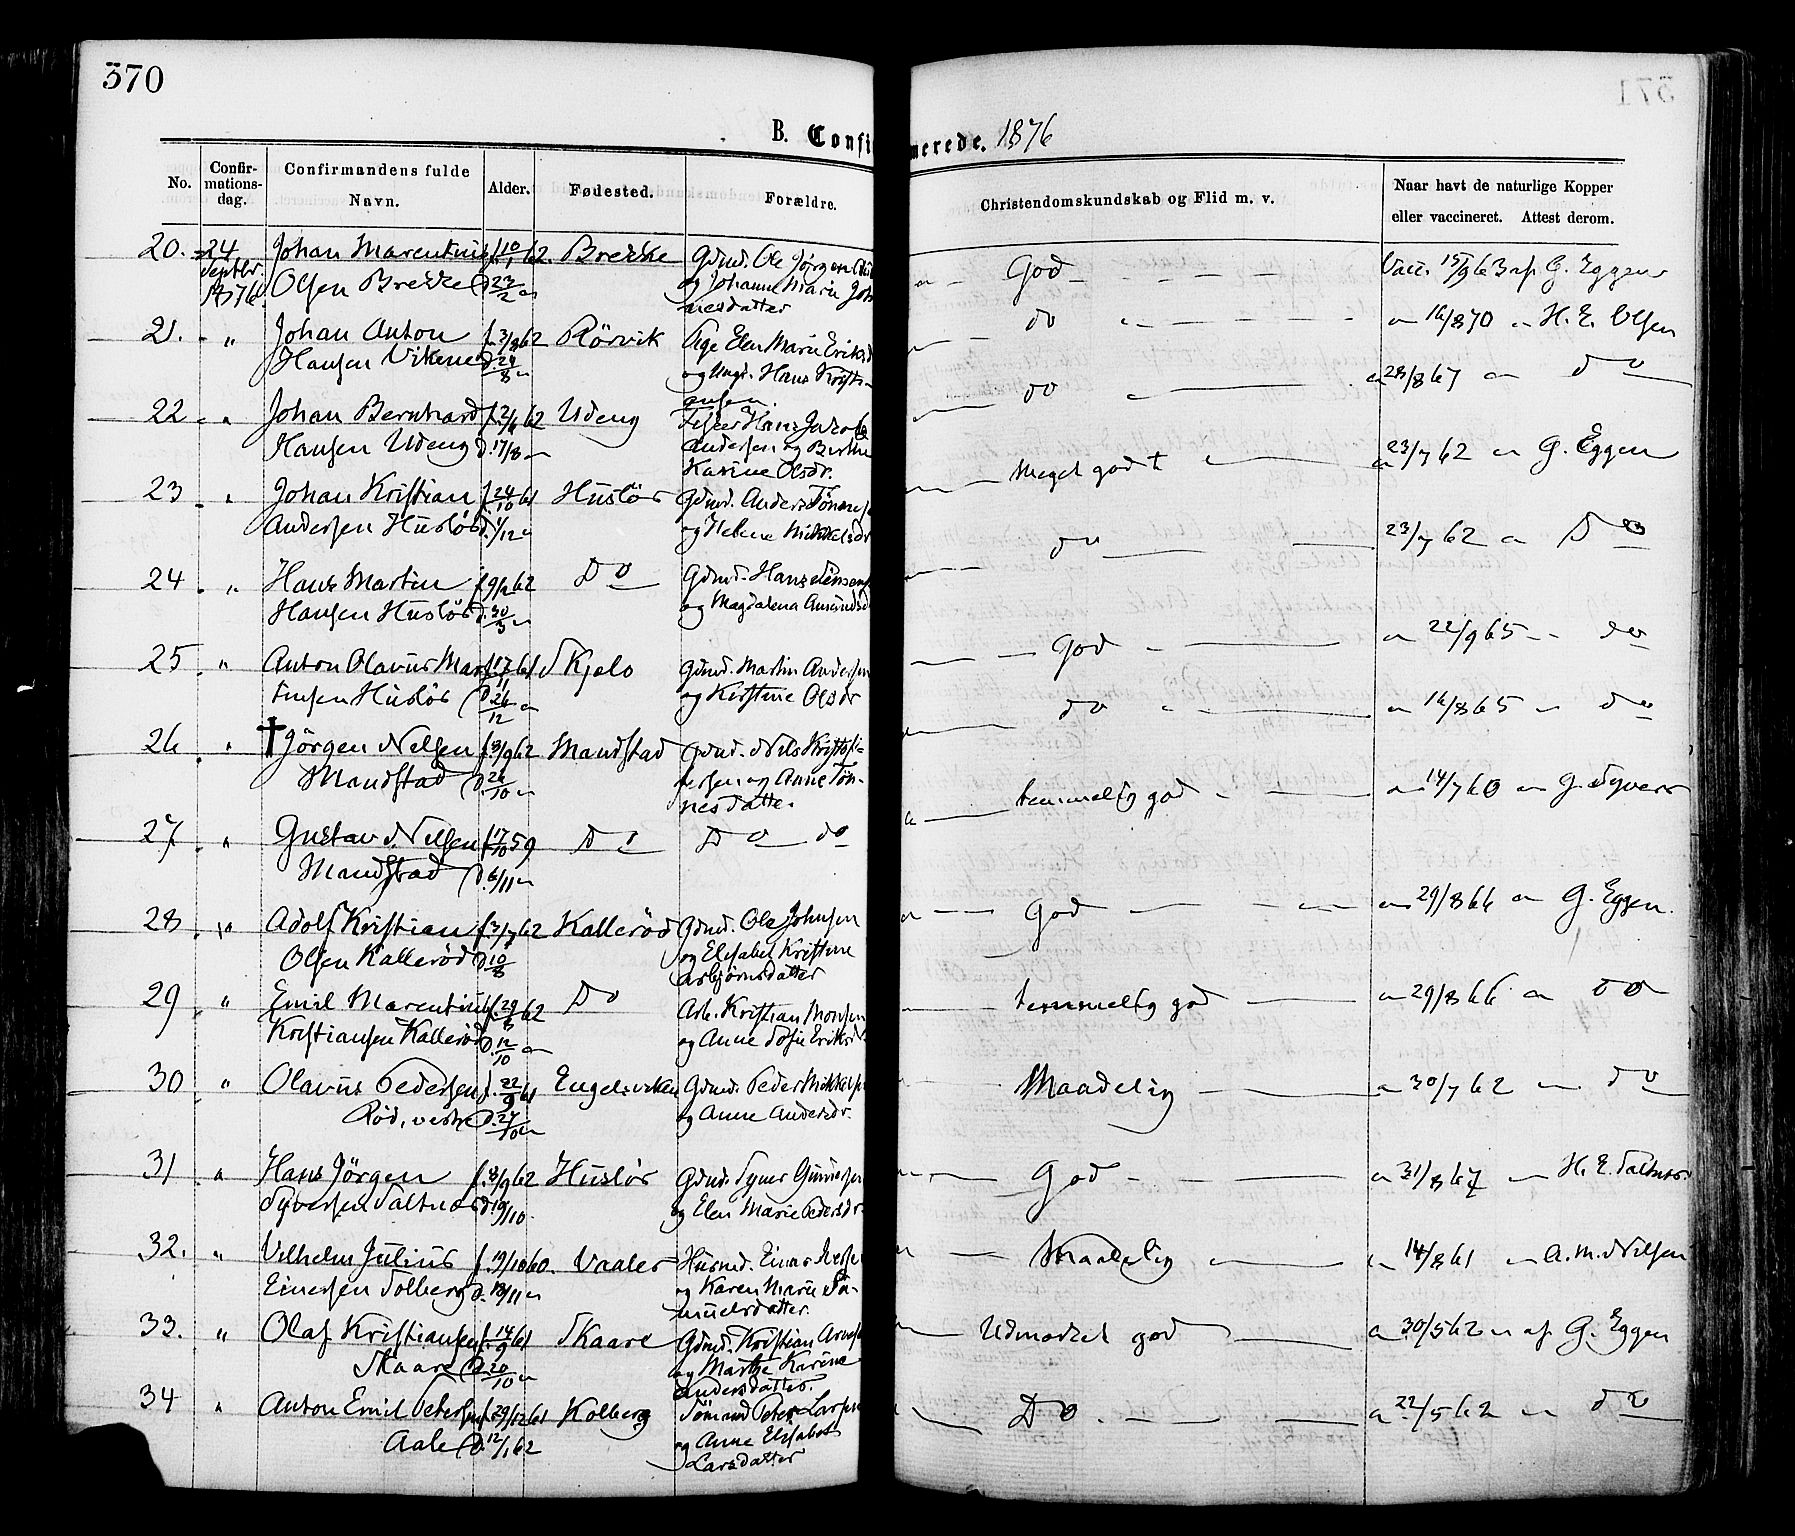 370
B. Confi
No.
Confir-
mations-
dag.
Confirmandens fulde
Navn.
Alder.
Fødested.
Forældre.
20. 24 Johan Marentius f. 10/1 62. Brekke Gdmd. Ole Jørgen
Septbr. 1876. Olsen Brekke D. 23/2 og Johanne Marie Joh
nesdatter
21. " Johan Anton f. 3/8 62 Rörvik Pige Elen Marie Eriksd
Hansen Vikene D. 24/8 og Ungk. Hans Kristi-
ansen.
22 " Johan Bernhard f. 2/6 62 Udeng Fisker Hans Jakob
Hansen Udeng d. 17/8 Andersen og Berthe
Karine Olsdr.
23 " Johan Kristian f. 24/10 61 Huslös Gdmd. Anders Tönnese
Andersen Huslös d. 1/12 og Helene Mikkelsdr
24 " Hans Martin f. 9/2 62 Do Gdmd. Hans Jensen
Hansen Huslös d. 30/3 og Magdalena Amundsd
25 " Anton Olavus Mar f. 17/11 61 Skjelo Gdmd. Martin Andersen
tinsen Huslös D. 26/12 og Kirstine Olsdr
26 " † Jörgen Nilsen f. 3/9 62 Mandstad Gdmd. Nils Kristoff-
Mandstad D. 26/10 fersen og Anne Tön-
nesdatter
27. " Gustav Nilsen f. 17/10 59 Do Do do
Mandstad D. 6/11
28 " Adolf Kristian f. 3/7 62 Kallerød Gdmd. Ole Johnsen
Olsen Kallerød D. 10/8 og Elisabet Kristine
Asbjørnsdatter
29 " Emil Marentius f. 29/8 62 Do Arb. Kristian Monsen
Kristiansen Kallerød D. 12/10 og Anne Sofie Eriksd
30 " Olavus Pedersen f. 22/9 61 Engelsviken Gdmd. Peder Mikkelsen
Röd, vestre D. 27/10 og Anne Andersdr.
31 " Hans Jörgen f. 8/9 62 Huslös Gdmd. Syver Gundersen
Syversen Saltnes d. 19/10. og Elen Marie Pedersdr.
32. " Vilhelm Julius f. 19/10 60. Vaaler Husmd. Einar Iversen
Einersen Solberg d. 18/11 og Karen Marie Sa-
muelsdatter.
33. " Olaf Kristiansen f. 14/9 61 Skaare Gdmd. Kristian Arnesen
Skaare D. 20/10 og Marthe Karine
Andersdatter.
34 " Anton Emil Petersen f. 29/12 61 Kolberg Sömand Peter Larsen
Aale D. 12/1 62 og Anne Elisabet
Larsdatter
merede. 1876
Christendomskundskab og Flid m. v.
Naar havt de naturlige Kopper
eller vaccineret. Attest derom.
God Vacc. 15/9 63 af G. Eggen
do 16/8 70 H. E. Olsen
do 28/8 67 do
Meget godt 23/7 62 G. Eggen
do 23/7 62 Do
God 22/9 65 do
do 16/8 65 do
temmelig god 14/7 60 G. Syvers
God 29/8 66 G. Eggen.
temmelig god 29/8 66 Do
Maadelig 30/7 62 do
God 31/8 67 H. E. Saltnes.
Maadelig 14/8 61 A. M. Nilsen
Udmærket god 30/5 62 af G. Eggen
Do. 22/5 62 do